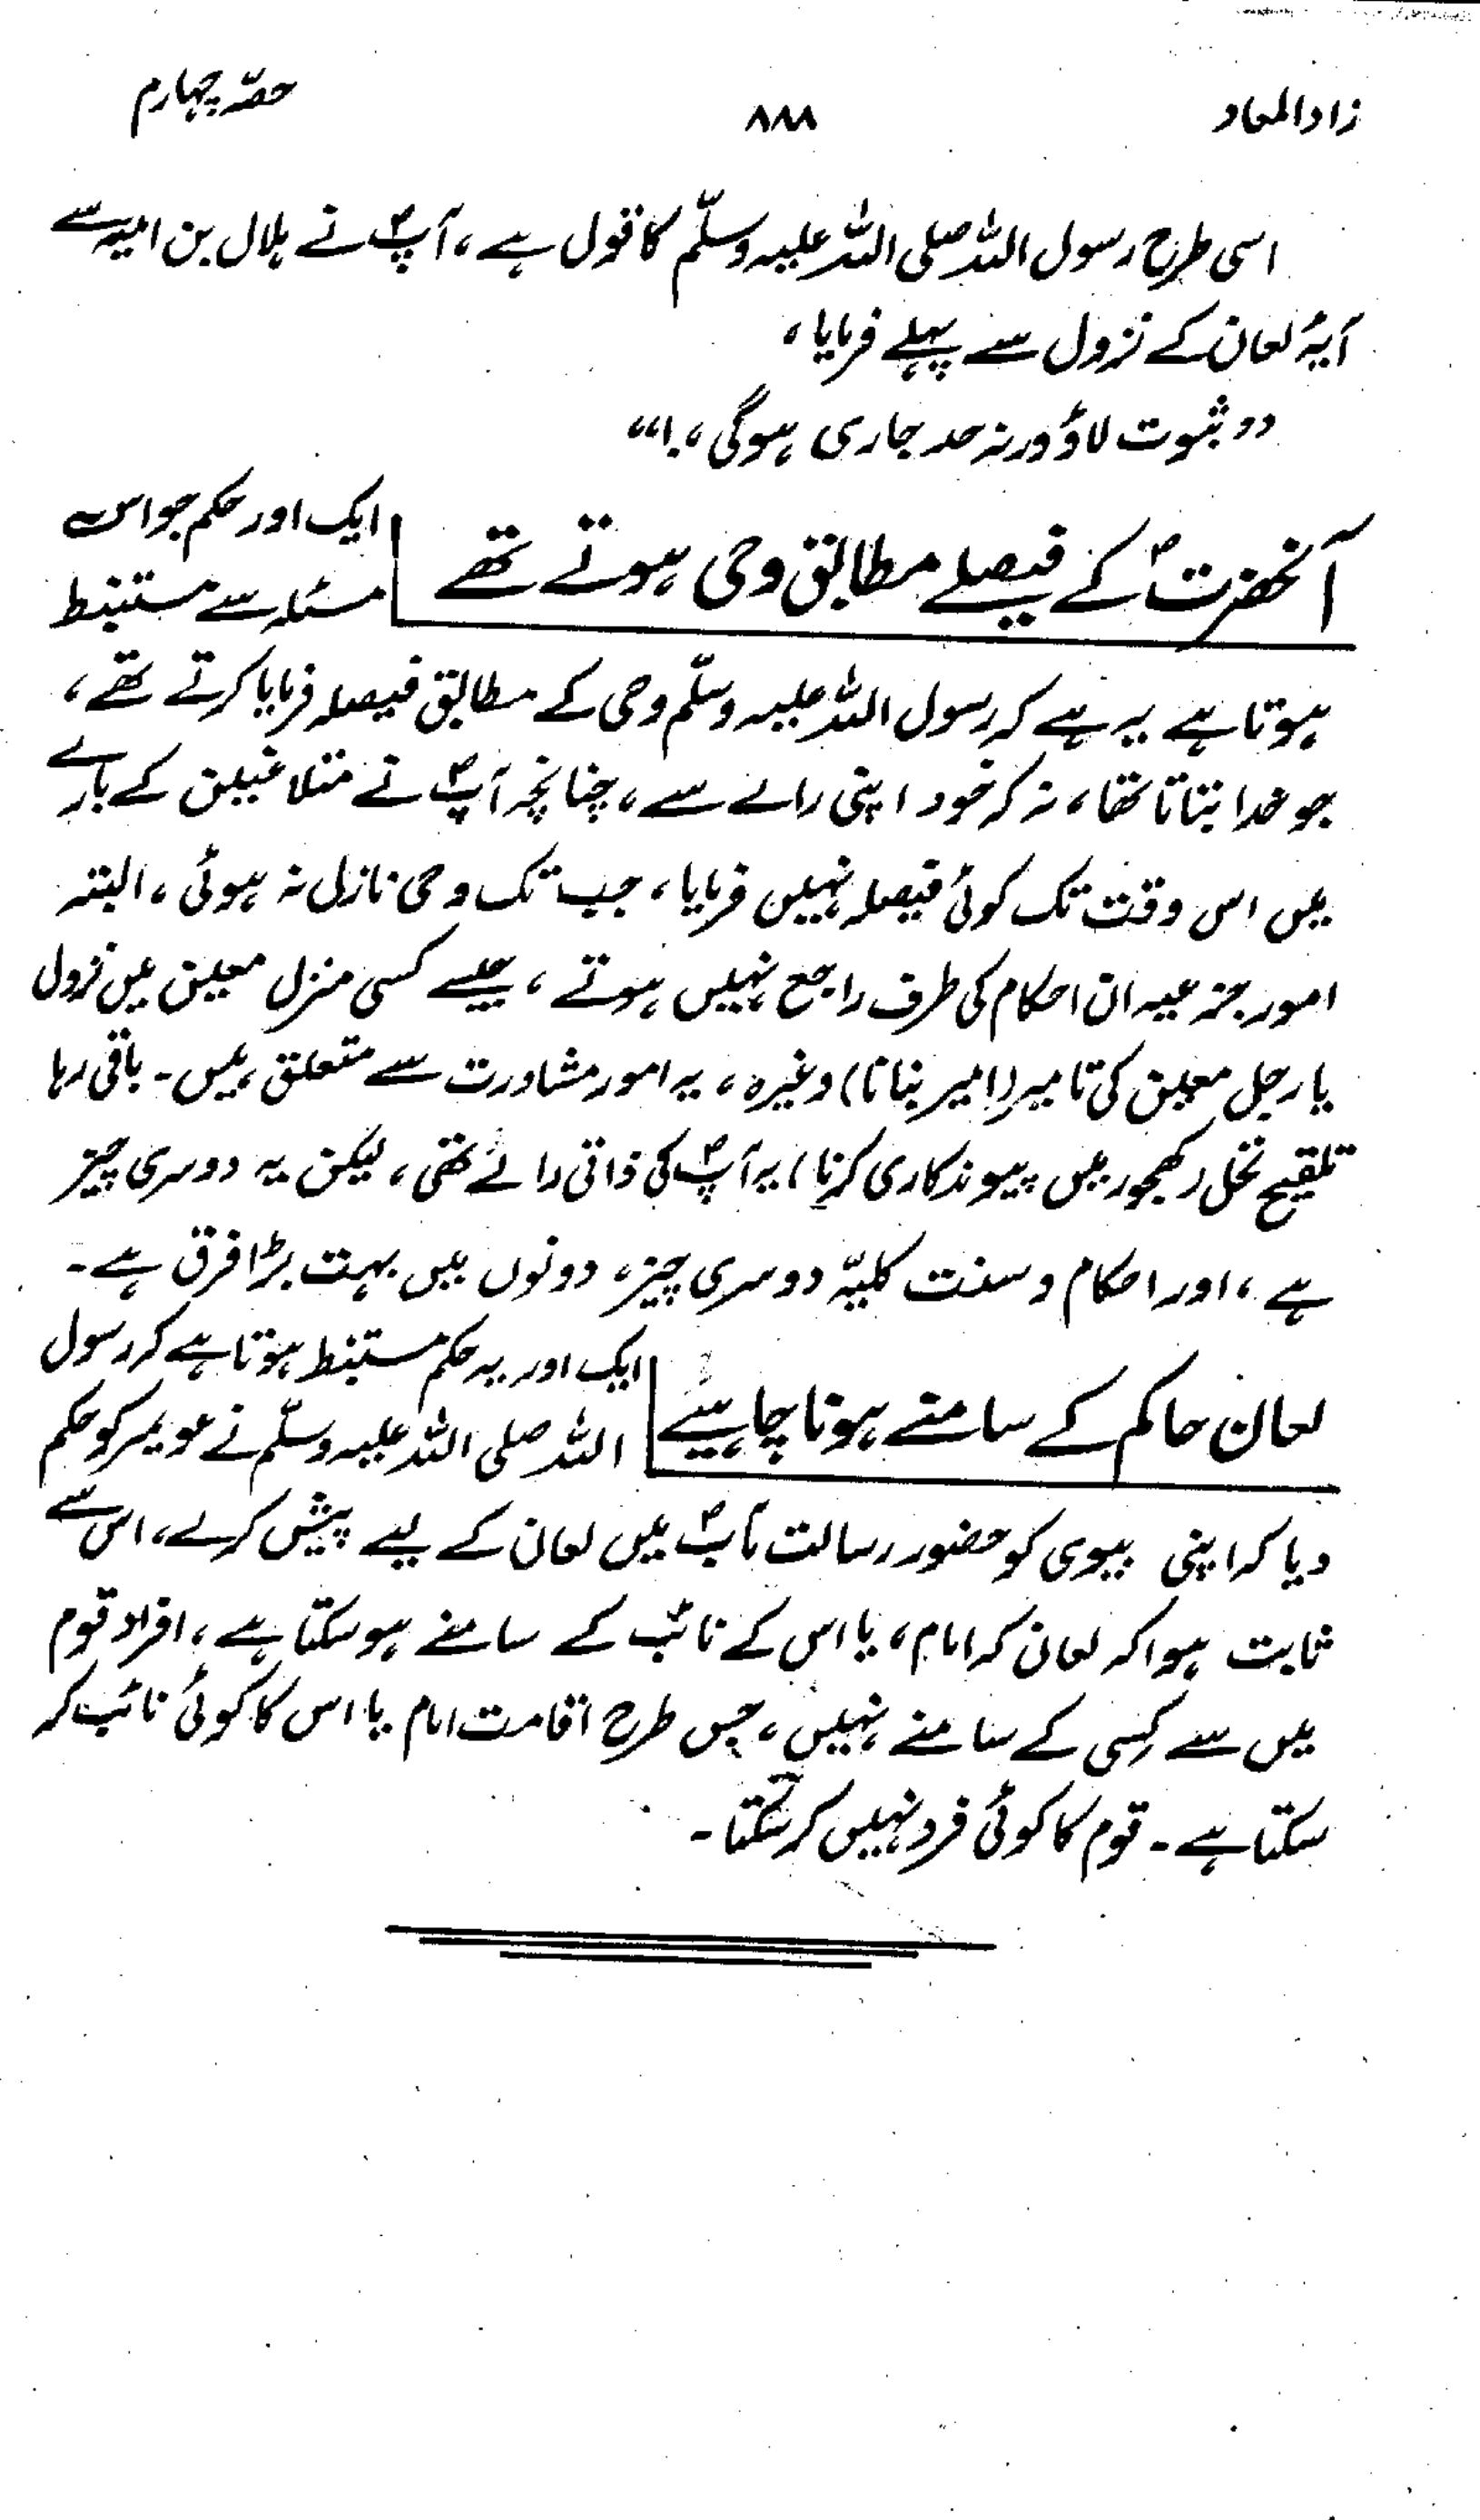 زادالمعاد
۸۸۸
حصّہ چہارم
اسی طرح رسول اللہ صلی اللہ علیہ وسلّم کا قول ہے، آپؐ نے ہلال بن امیہ سے
آیۂ لعان کے نزول سے پہلے فرمایا،
"ثبوت لاؤ ورنہ حد جاری ہوگی،!"
آنحضرتؐ کے فیصلے مطابق وحی ہوتے تھے
ایک اور حکم جو اس
مسئلہ سے مستنبط
ہوتا ہے یہ ہے کہ رسول اللہ علیہ وسلّم وحی کے مطابق فیصلہ فرمایا کرتے تھے،
جو خدا بتاتا تھا، نہ کہ خود اپنی رائے سے، چنانچہ آپؐ نے متلاعنین کے بارے
میں اس وقت تک کوئی فیصلہ نہیں فرمایا، جب تک وحی نازل نہ ہوئی، البتہ
امور جزعیہ ان احکام کی طرف راجع نہیں ہوتے، جیسے کسی منزل معین میں نزول
یا رجل معین کی تامیر (امیر بنانا) وغیرہ، یہ امور مشاورت سے متعلق ہیں۔ باقی رہا
تلقیح نخل (کھجور میں پیوندکاری کرنا) یہ آپؐ کی ذاتی رائے تھی، لیکن یہ دوسری چیز
ہے، اور احکام و سنت کلیّہ دوسری چیز، دونوں میں بہت بڑا فرق ہے۔
لعان حاکم کے سامنے ہونا چاہیئے
ایک اور یہ حکم مستنبط ہوتا ہے کہ رسول
اللہ صلی اللہ علیہ وسلّم نے عویمر کو حکم
دیا کہ اپنی بیوی کو حضور رسالت مآبؐ میں لعان کے لیے پیش کرے، اس سے
ثابت ہوا کہ لعان کہ امام، یا اس کے نائب کے سامنے ہو سکتا ہے، افراد قوم
میں سے کسی کے سامنے نہیں، جس طرح اقامت امام یا اس کا کوئی نائب کر
سکتا ہے۔ قوم کا کوئی فرد نہیں کر سکتا۔